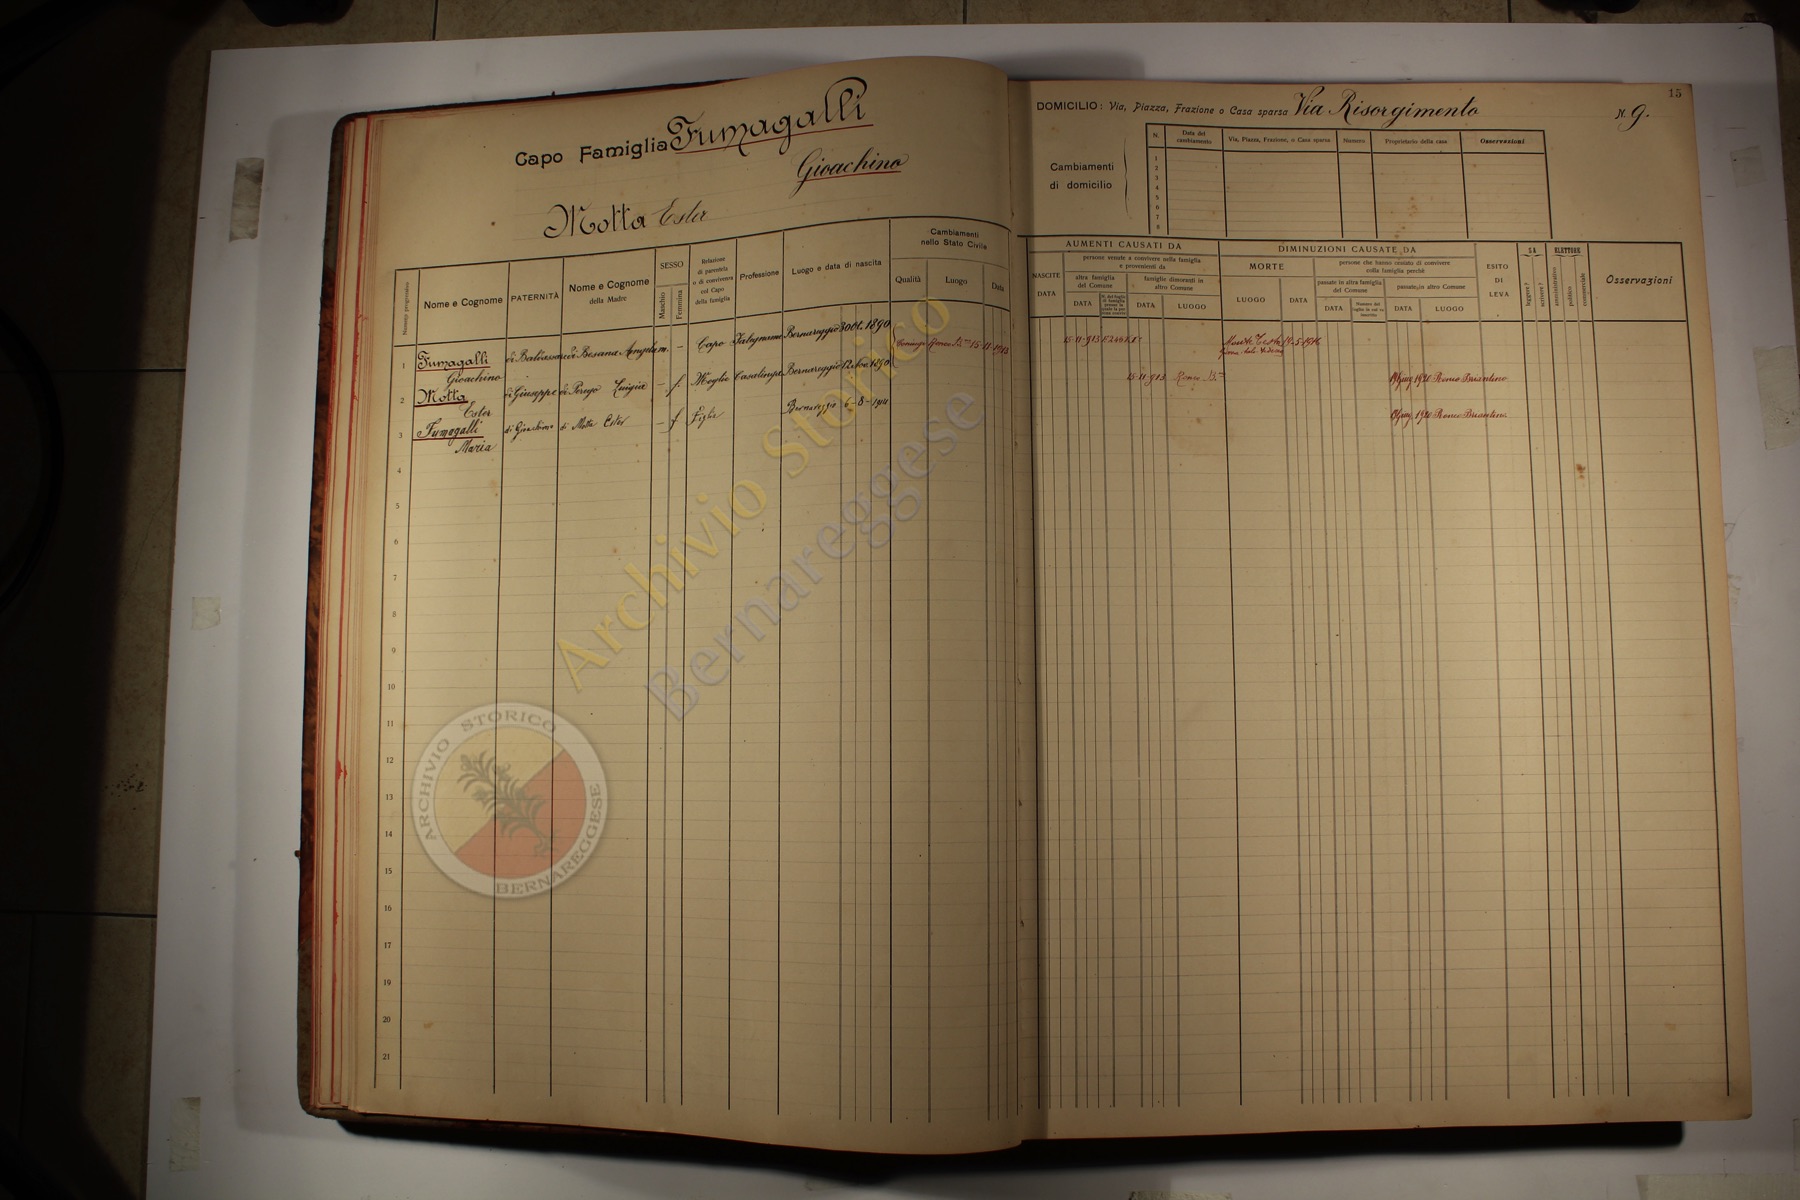 Capo Famiglia Fumagalli
Gioachino
Motta Ester
Numero progressivo
Nome e Cognome
PATERNITÀ
Nome e Cognome
della Madre
SESSO
Maschio
Femmina
Relazione
di parentela
o di convivenza
col Capo
della famiglia
Professione
Luogo e data di nascita
Cambiamenti
nello Stato Civile
Qualità
Luogo
Data
1 Fumagalli Gioachino di Baldassare di Besana Angela m. – Capo Bernareggio 3 Ott. 1890 Ronco 15-11-1913
2 Motta Ester di Giuseppe di Perego Luigia – f. Moglie Casalinga Bernareggio 12 Nov 1890
3 Fumagalli Maria di Gioachino di Motta Ester – f Figlia Bernareggio 6-8-1914
4
5
6
7
8
9
10
11
12
13
14
15
16
17
18
19
20
21
15
DOMICILIO: Via, Piazza, Frazione o Casa sparsa Via Risorgimento N. 9.
Cambiamenti
di domicilio
N.
Data del
cambiamento
Via, Piazza, Frazione, o Casa sparsa
Numero
Proprietario della casa
Osservazioni
1
2
3
4
5
6
7
8
AUMENTI CAUSATI DA
NASCITE
DATA
persone venute a convivere nella famiglia
e provenienti da
altra famiglia
del Comune
DATA
famiglie dimoranti in
altro Comune
DATA
LUOGO
DIMINUZIONI CAUSATE DA
MORTE
LUOGO
DATA
persone che hanno cessato di convivere
colla famiglia perchè
passate in altra famiglia
del Comune
DATA
passate in altro Comune
DATA
LUOGO
ESITO
DI
LEVA
SA
leggere?
scrivere?
ELETTORE
amministrativo
politico
commerciale
Osservazioni
15-11-913
15-11-913 Ronco B.
1920 Ronco Briantino
1920 Ronco Briantino
Archivio Storico
Bernareggese
ARCHIVIO STORICO
BERNAREGGESE